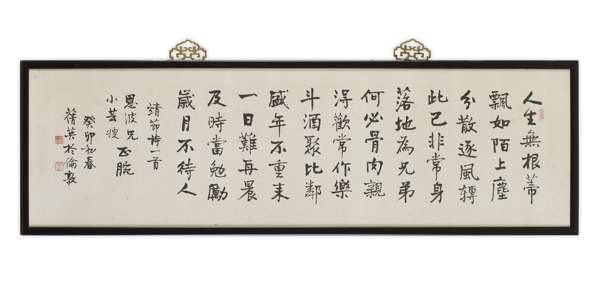 人生無根蒂
飄如陌上塵
分散逐風轉
此已非常身
落地為兄弟
何必骨肉親
得歡常作樂
斗酒聚比鄰
盛年不重来
一日難再晨
及時當勉勵
歲月不待人
靖節詩一首
恩波兄
小芸嫂 正腕
癸卯初春
蒨英於倫敦